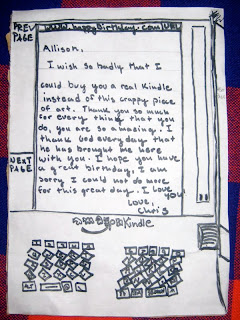 PREV
PAGE
www.happyBirthday.com/URL
Allison,
I wish so badly that I
could buy you a real Kindle
instead of this crappy piece
of art. Thank you so much
for every thing that you
do, you are so amazing. I
thank God everyday that
he has brought me here
with you. I hope you have
a great birthday, I am
sorry I could not do more
for this great day. I love
you!
Love,
Chris
NEXT
PAGE
Kindle